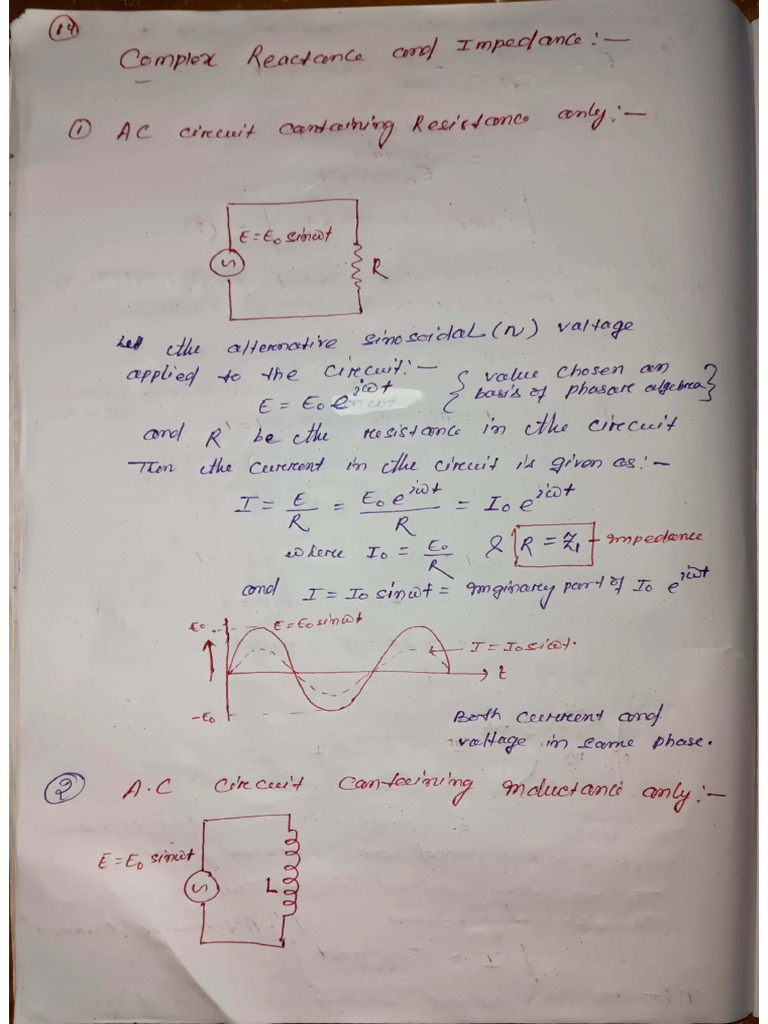 14
Complex Reactance and Impedance:-
① AC circuit containing Resistance only:-
E = E₀ sinωt
R
Let the alternative sinosoidal (~) voltage
applied to the circuit:- {value chosen on
basis of phasare algebrea}
E = E₀ e^jωt
and R be the resistance in the circuit
Then the current in the circuit is given as:-
I = E/R = E₀ e^jωt/R = I₀ e^jωt
where I₀ = E₀/R & R = Z₁ - impedance
and I = I₀ sinωt = imginary part of I₀ e^jωt
E₀ E = E₀ sinωt
I = I₀ siωt.
t
-E₀
Both current and
voltage in same phase.
② A.C circuit Containing inductance only:-
E = E₀ sinωt
L